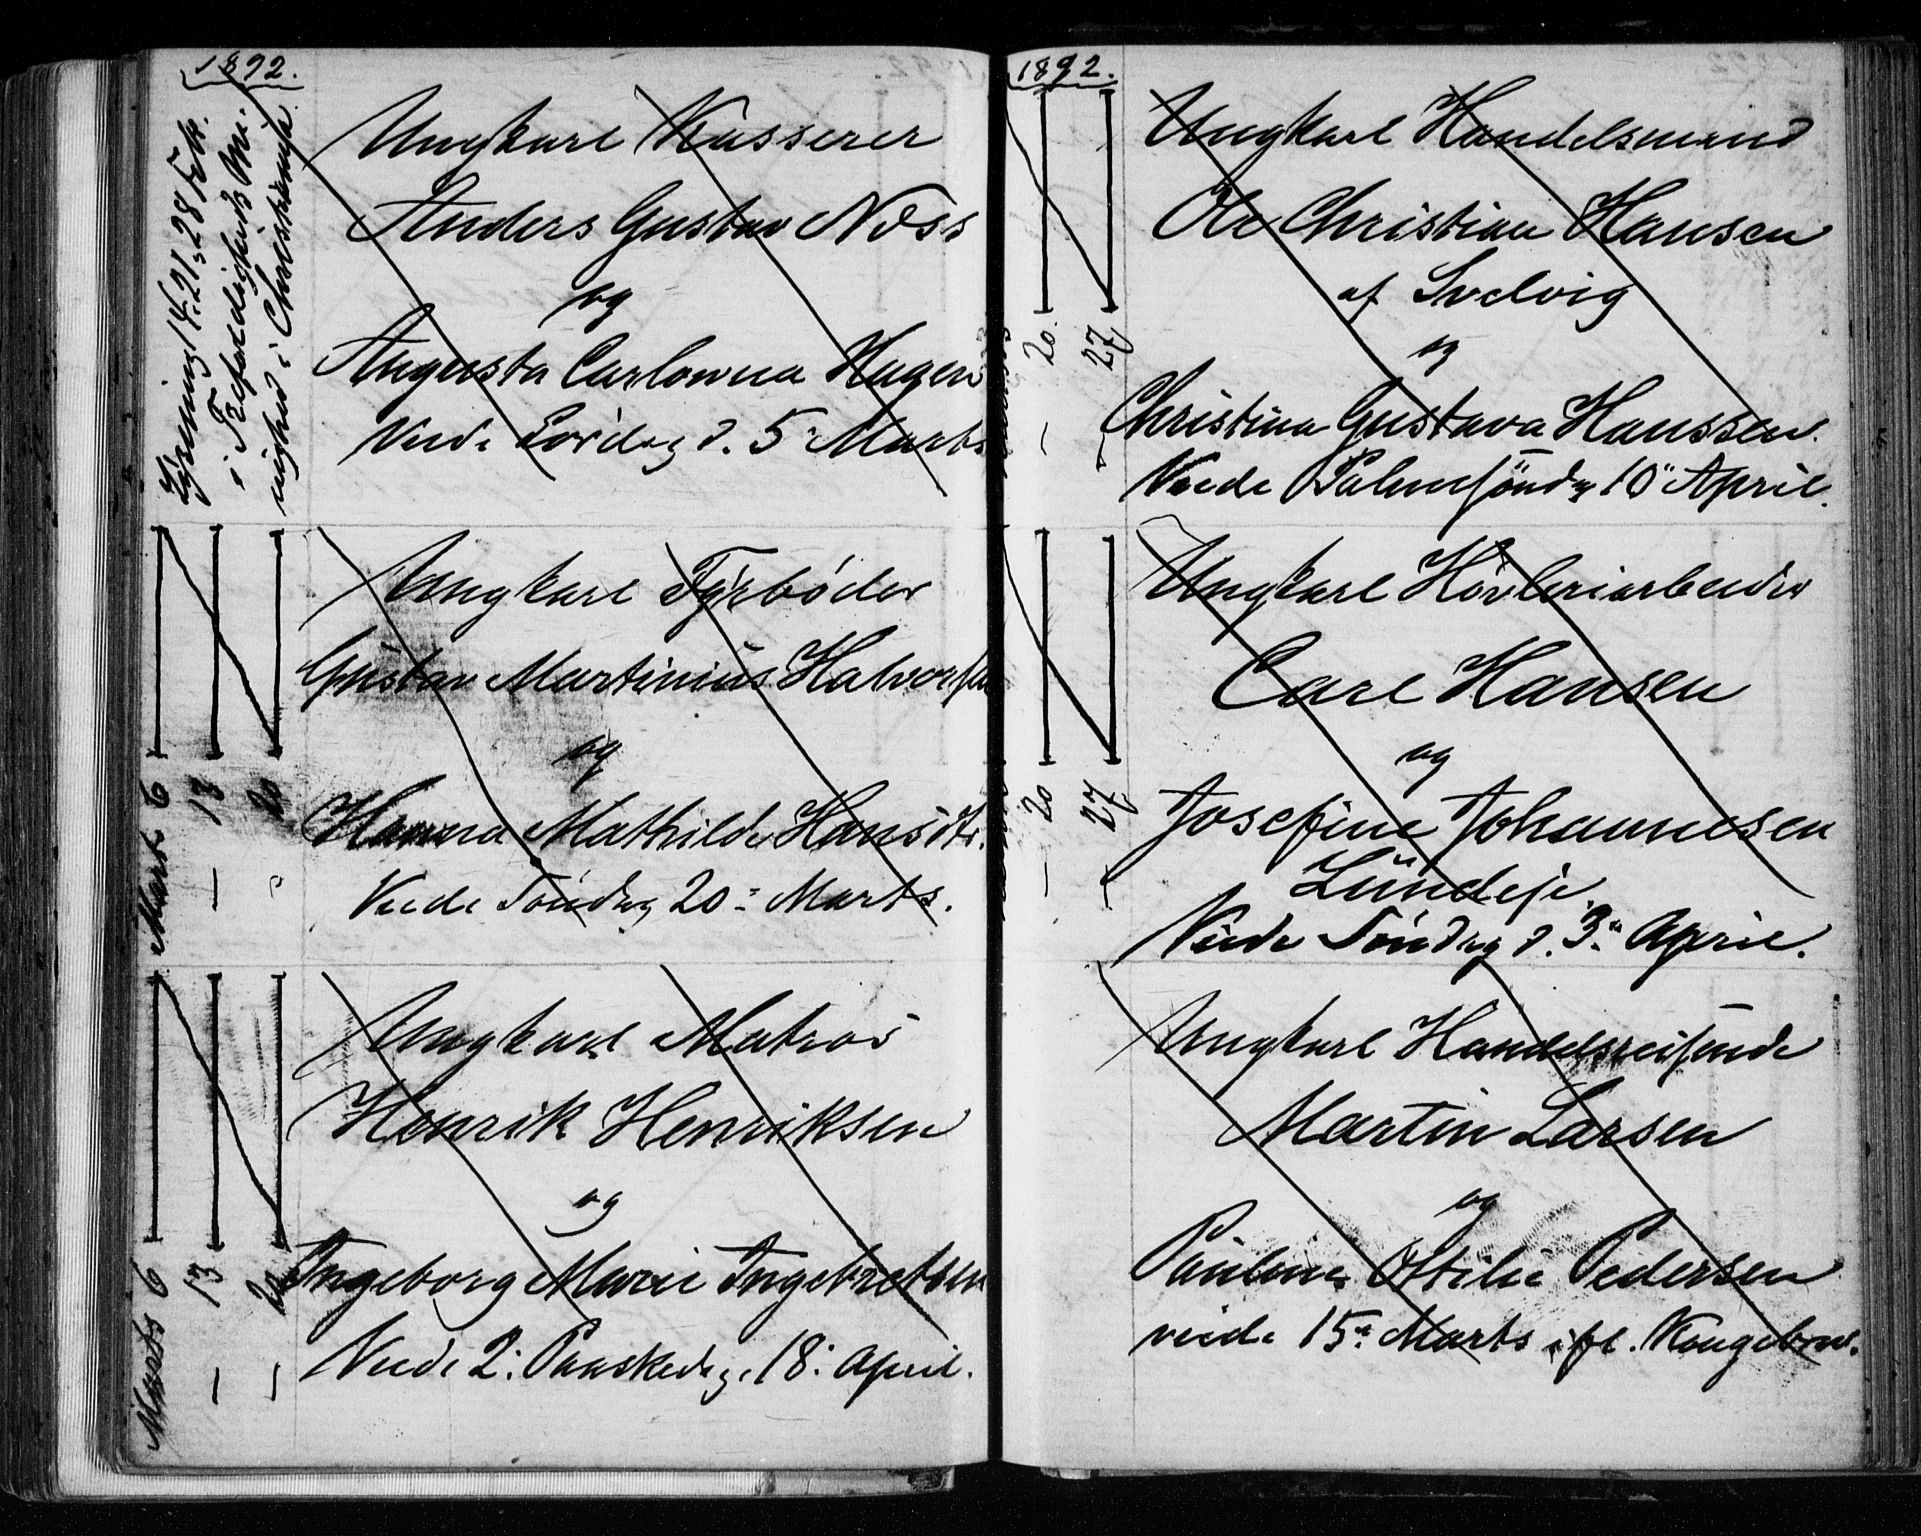 1892.
Lysning 14, 21, 28 Feb.
i Trefoldigheds M.
nighed i Christiania
Ungkarl Kasserer
Anders Gustav Næss
og
Augusta Carlowna Hagen
Viede Lørdag d. 5 Marts
Marts 6
— 13
— 20
Ungkarl Fyrbøder
Gustav Martinius Halvorsen
og
Hanna Mathilde Hansdtr.
Viede Søndag 20: Marts.
Marts 6
— 13
— 20
Ungkarl Matros
Henrik Henriksen
og
Ingeborg Marie Ingebretsen
Viede 2: Paaskedag, 18: April.
1892.
— 20.
— 27
Ungkarl Handelsmand
Ole Christian Hansen
af Svelvig
og
Christina Gustava Hanssen.
Viede Palmesøndag 10" April.
— 20
— 27
Ungkarl Høvleriarbeider
Carl Hansen
og
Josefine Johannesen
Lundeje.
Viede Søndag d. 3" April.
Ungkarl Handelsreisende
Martin Larsen
og
Pauline Ottilie Pedersen
viede 15: Marts ifl. Kongebrev.